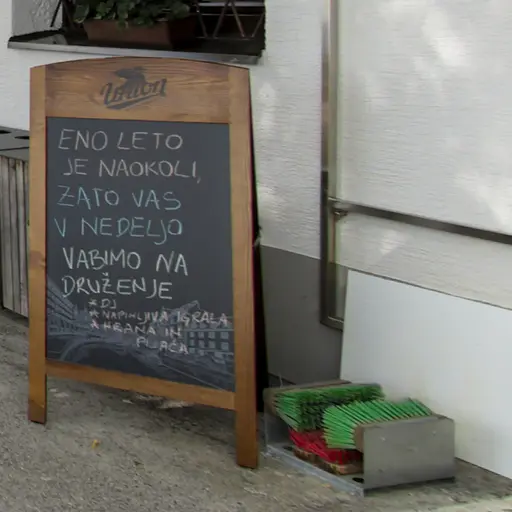 Union
ENO LETO
JE NAOKOLI,
ZATO VAS
V NEDELJO
VABIMO NA
DRUŽENJE
*DJ
*NAPIHLJIVA IGRALA
*HRANA IN
PIJAČA